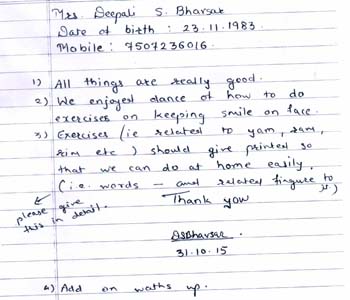 Mrs. Deepali S. Bharsar
Date of birth : 23.11.1983.
Mobile : 7507236016.
1) All things are really good.
2) We enjoyed dance of how to do
exercises on keeping smile on face.
3) Exercises (ie related to yam, ram,
rim etc) should give printed so
that we can do at home easily.
(i.e. words – and related fingure to it)
please give
this in detail.
Thank you
DSBharsar.
31.10.15
4) Add on up.